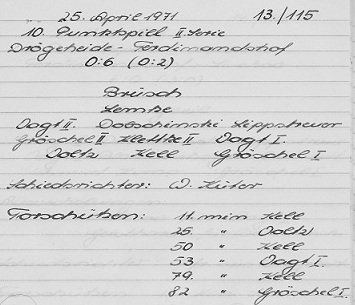 25. April 1971 13./115
10. Punktspiel II Serie
Drögeheide - Ferdinandshof
0:6 (0:2)
Brüsch
Lemke
Vogt II. Dobschinski Lippstreuer
Gröschel II Klettke II Vogt I.
Voltz Kell Gröschel I
Schiedsrichter: D. Küter
Torschützen: 11. min Kell
25. " Voltz
50 " Kell
53 " Vogt I.
79. " Kell
82 " Gröschel I.